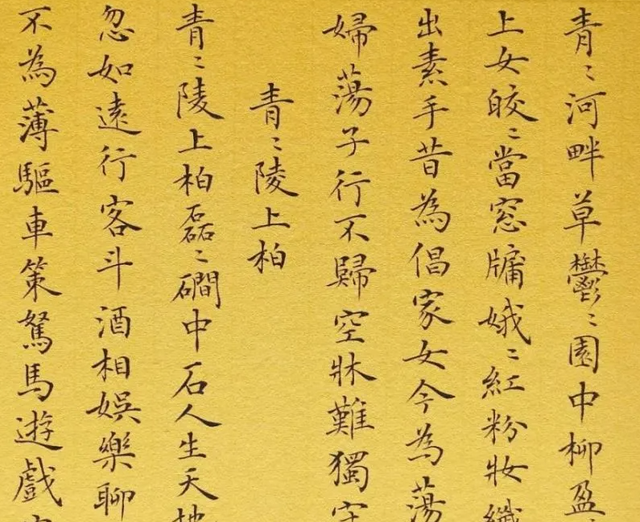 青〻河畔草鬱〻園中柳盈
上女皎〻當窓牖娥〻紅粉妝纖
出素手昔為倡家女今為蕩
婦蕩子行不歸空牀難獨守
青〻陵上柏
青〻陵上柏磊〻磵中石人生天地
忽如遠行客斗酒相娛樂聊
不為薄驅車策駑馬遊戲